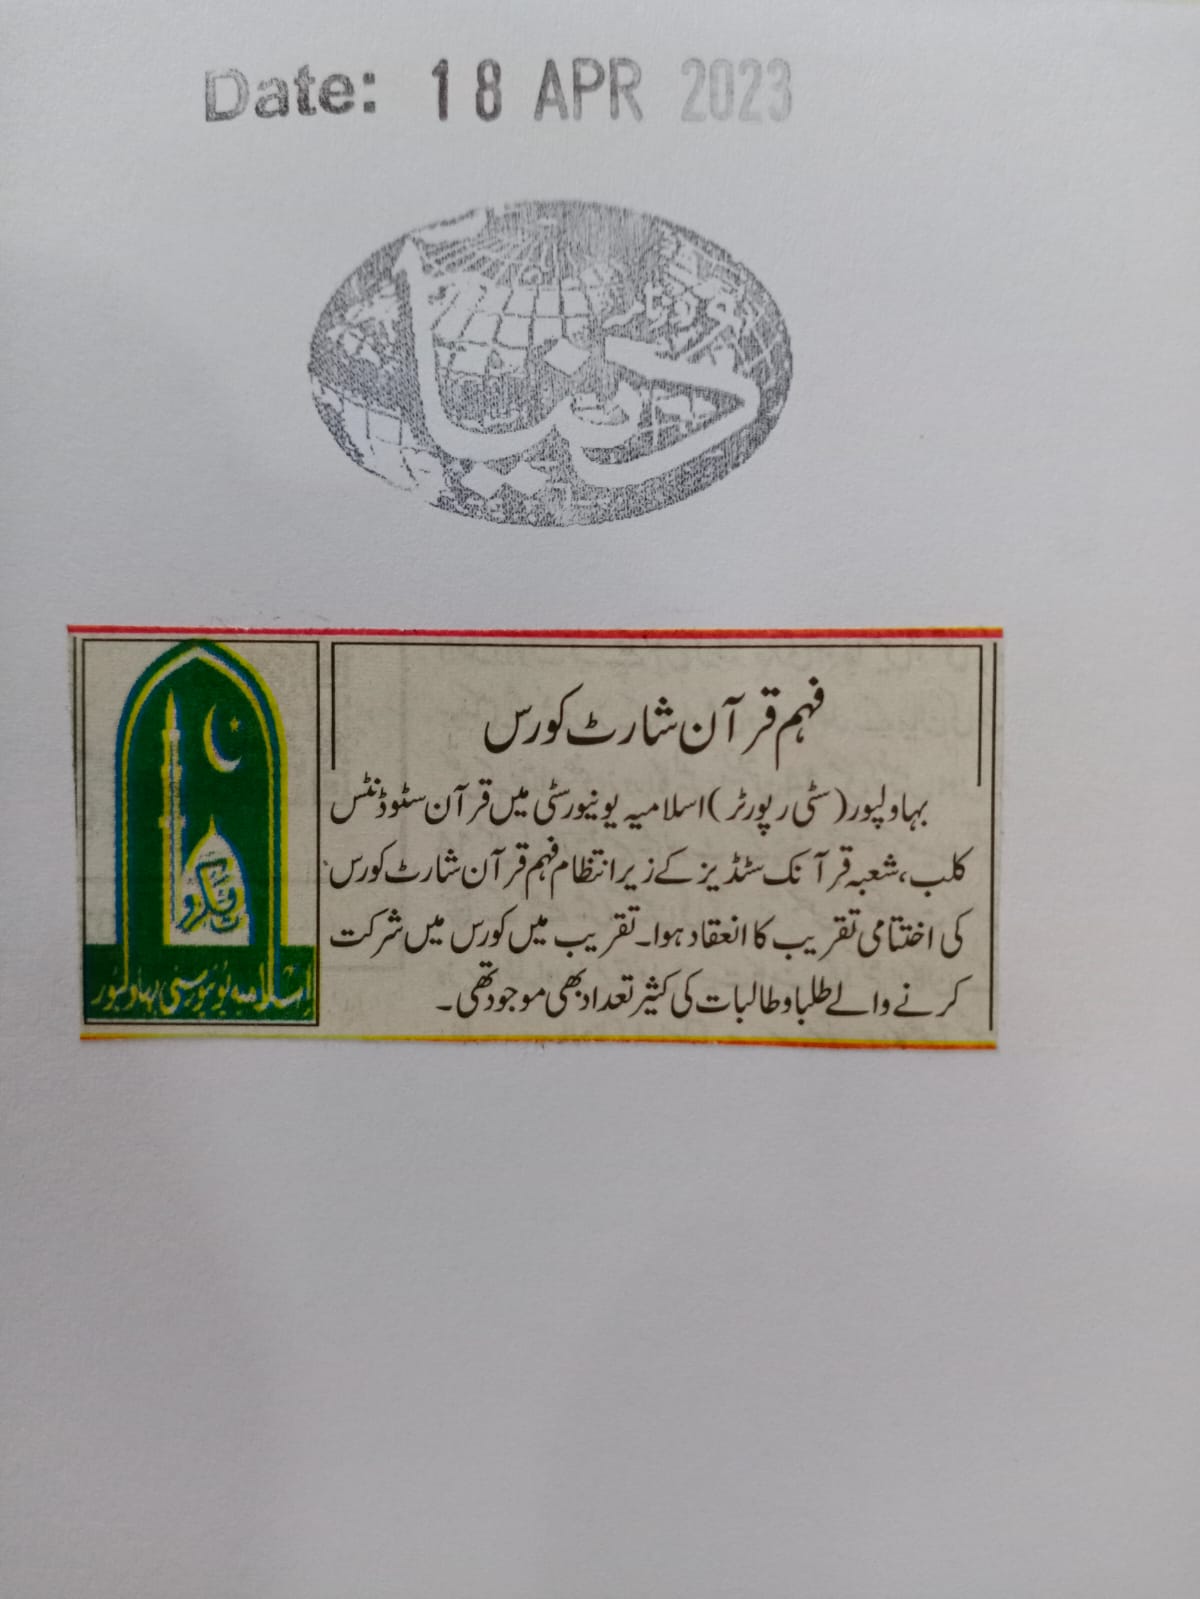 Date: 18 APR 2023
روزنامہ
دنیا
فہم قرآن شارٹ کورس
بہاولپور (سٹی رپورٹر) اسلامیہ یونیورسٹی میں قرآن سٹوڈنٹس
کلب، شعبہ قرآنک سٹڈیز کے زیر انتظام فہم قرآن شارٹ کورس
کی اختتامی تقریب کا انعقاد ہوا۔ تقریب میں کورس میں شرکت
کرنے والے طلبا و طالبات کی کثیر تعداد بھی موجود تھی۔
اسلامیہ یونیورسٹی بہاولپور